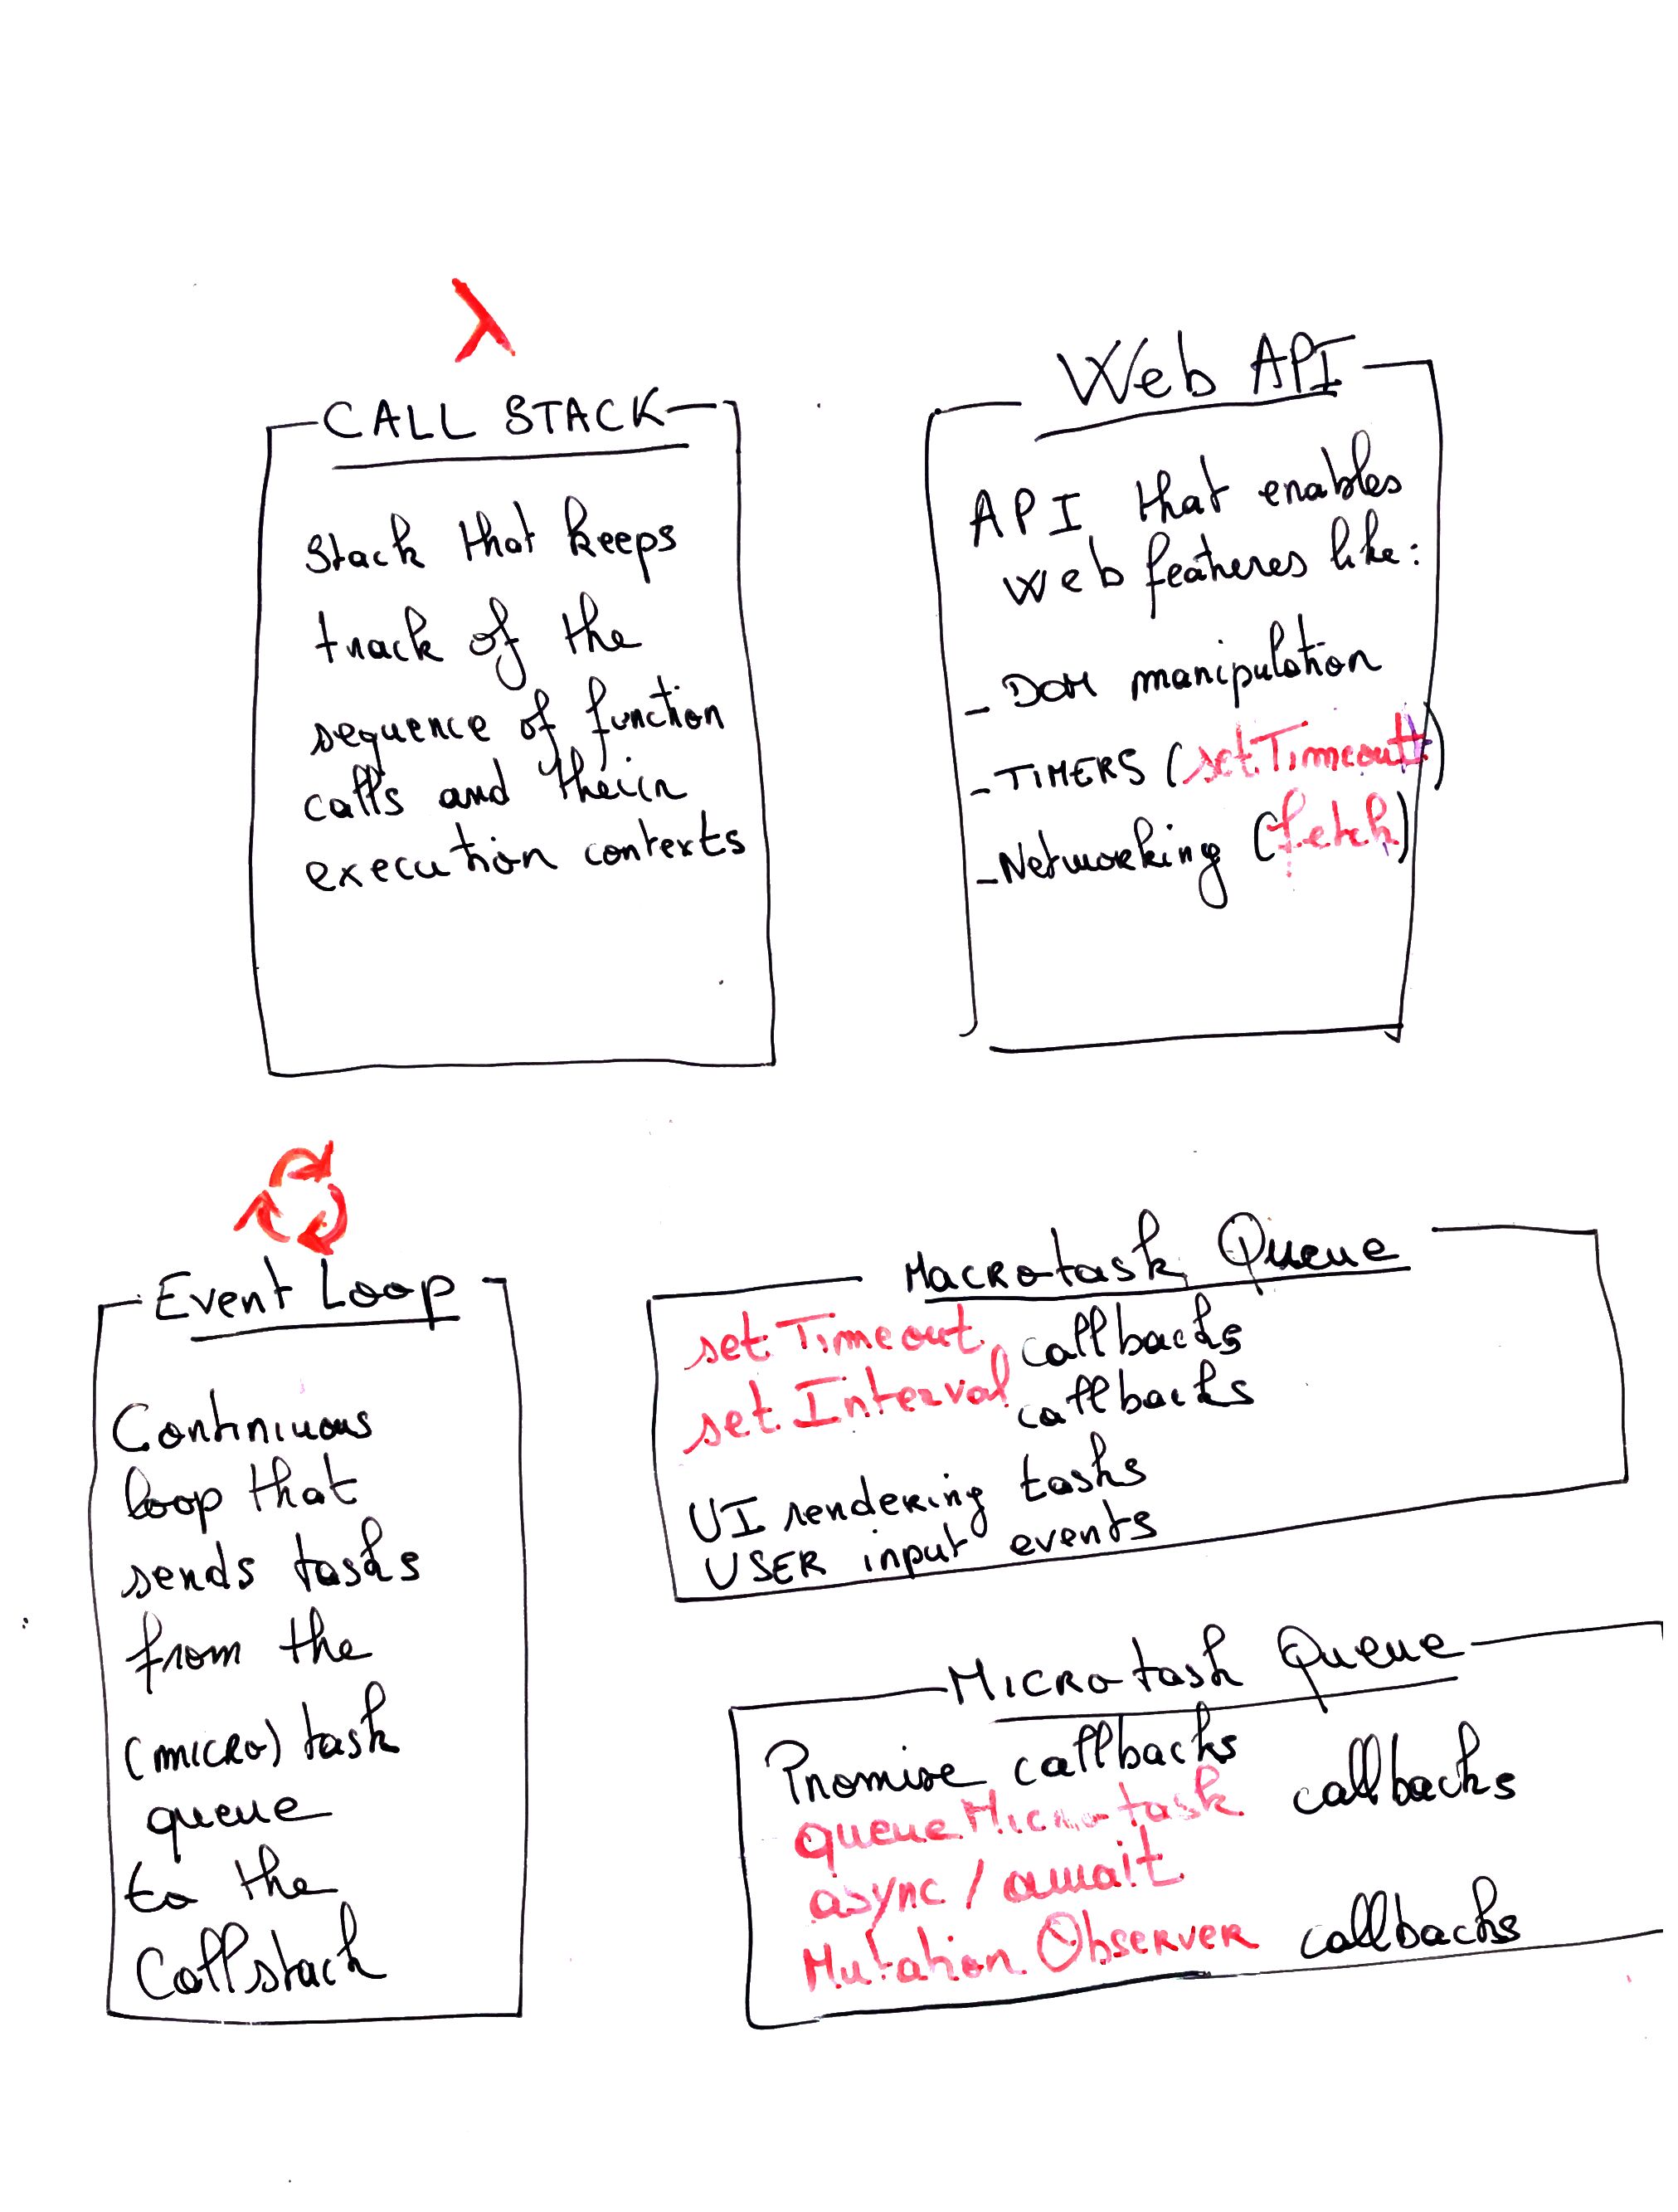 λ
CALL STACK
Stack that keeps
track of the
sequence of function
calls and their
execution contexts
Web API
API that enables
Web features like:
- DOM manipulation
- TIMERS (setTimeout)
- Networking (fetch)
Event Loop
Continuous
loop that
sends tasks
from the
(micro) task
queue
to the
Callstack
Macro-task Queue
setTimeout callbacks
setInterval callbacks
UI rendering tasks
USER input events
Micro-task Queue
Promise callbacks
queueMicro-task callbacks
async / await
Mutation Observer callbacks